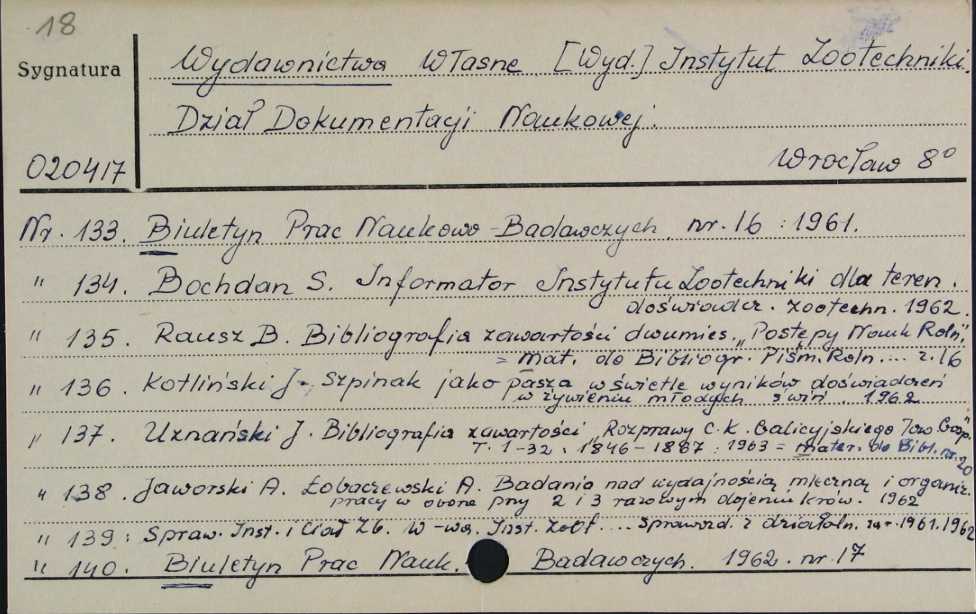 18
Sygnatura
Wydawnictwa Własne [Wyd.] Instytut Zootechniki.
Dział Dokumentacji Naukowej.
020417
Wrocław 8°
Nr. 133. Biuletyn Prac Naukowo-Badawczych. nr. 16 : 1961.
" 134. Bochdan S. Informator Instytutu Zootechniki dla teren.
doświadcz. zootechn. 1962.
" 135. Rausz B. Bibliografia zawartości dwumies. „Postępy Nauk Roln."
= mat. do Bibliogr. Piśm. Roln. ... z. 16
" 136. Kotliński J. Szpinak jako pasza w świetle wyników doświadczeń
w żywieniu młodych świń. 1962
" 137. Uznański J. Bibliografia zawartości „Rozprawy C. K. Galicyjskiego Tow Gosp."
T. 1-32. 1846-1867 : 1963 = mater. do Bibl. nr. 20
" 138. Jaworski A. Łobaczewski A. Badania nad wydajnością mleczną i organiz.
pracy w oborze przy 2 i 3 razowym dojeniu krów. 1962
" 139 : Spraw. Inst. i Zakł. W-wa. Inst. Zoot. ... Sprawozd. z działaln. za 1961.1962
" 140. Biuletyn Prac Nauk. Badawczych. 1962. nr. 17